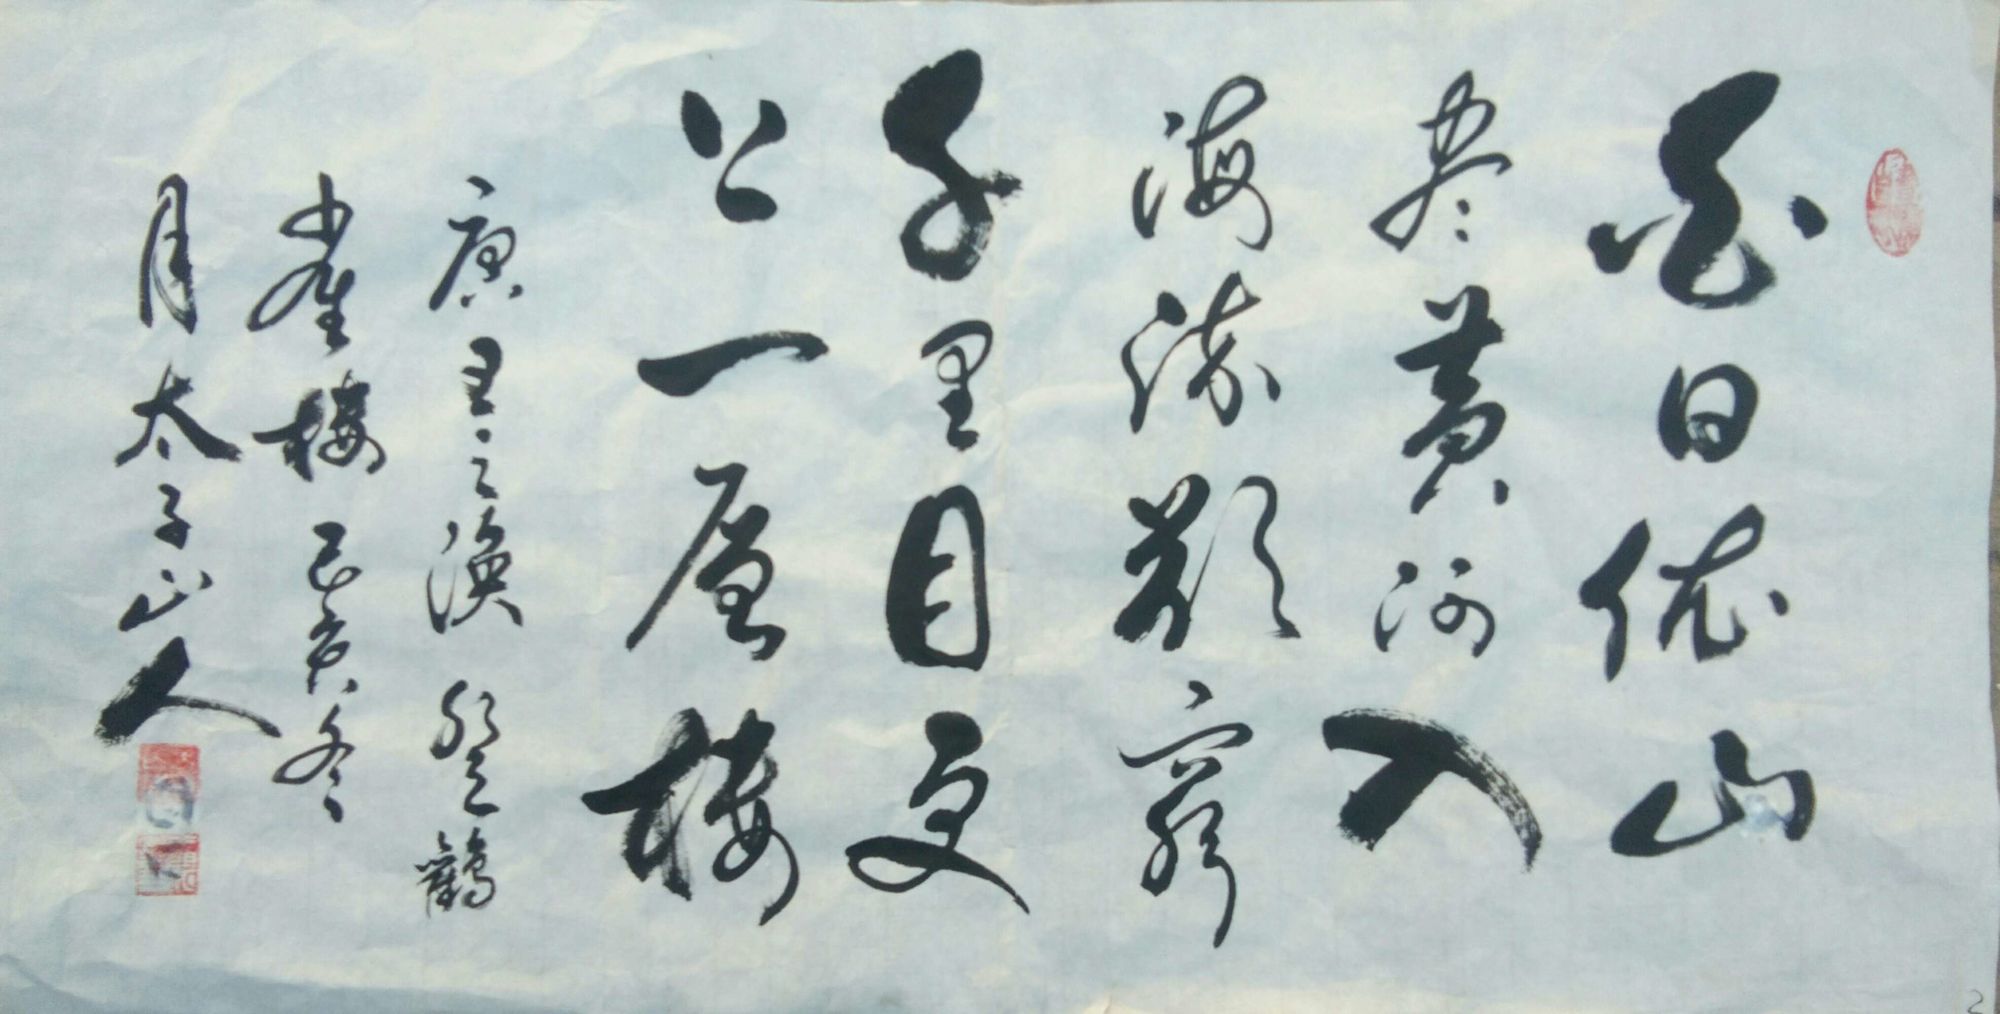 白日依山
尽黄河入
海流欲穷
千里目更
上一层楼
唐王之涣登鹳
雀楼己亥冬
月太子山人
2